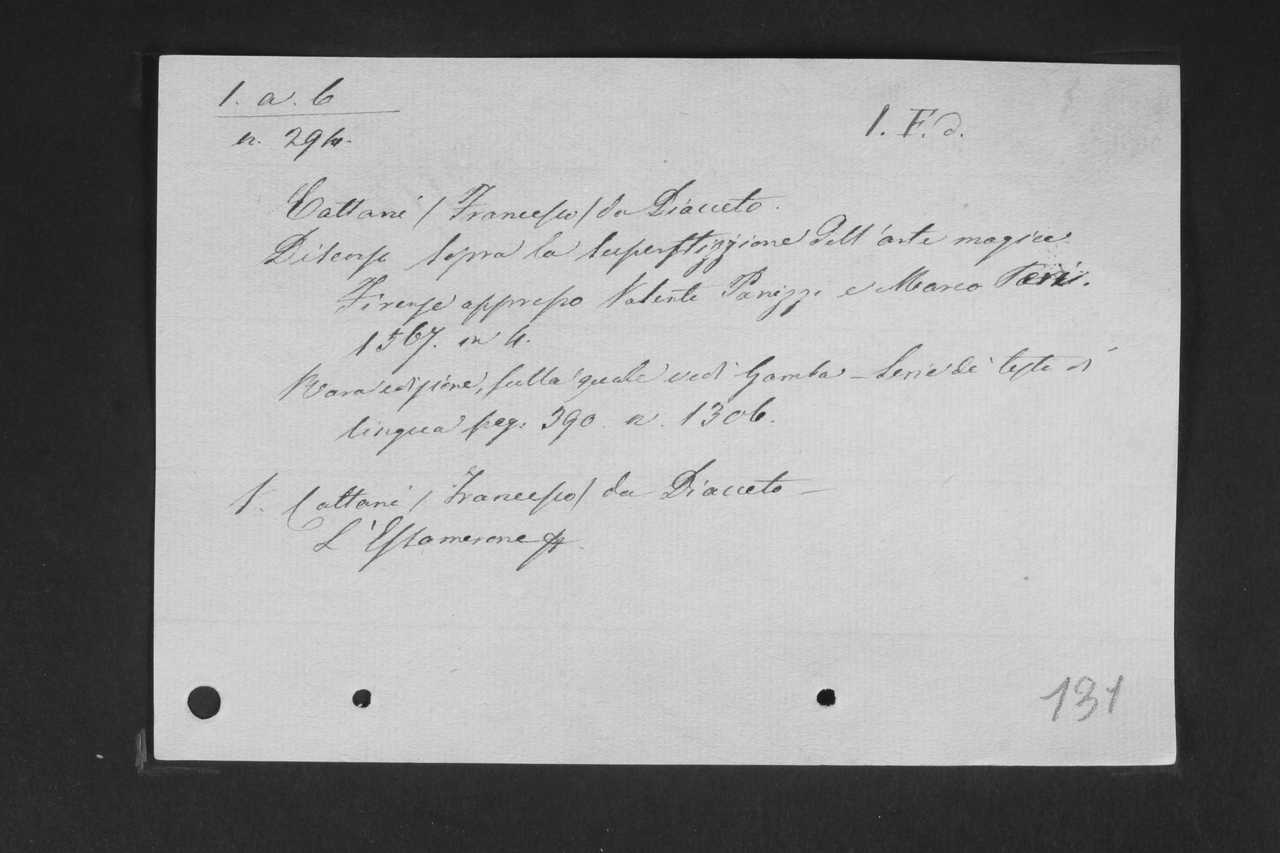 1. a. 6
n. 294.
1. F. d.
Cattani (Francesco) da Diacceto.
Discorso sopra la superstizzione dell'arte magica
Firenze appresso Valente Panizzi e Marco Peri.
1567. in 4.
Rara edizione, sulla quale vedi Gamba - Serie dei testi di
lingua pag. 390. n. 1306.
Cattani (Francesco) da Diacceto -
L'Essamerone
131